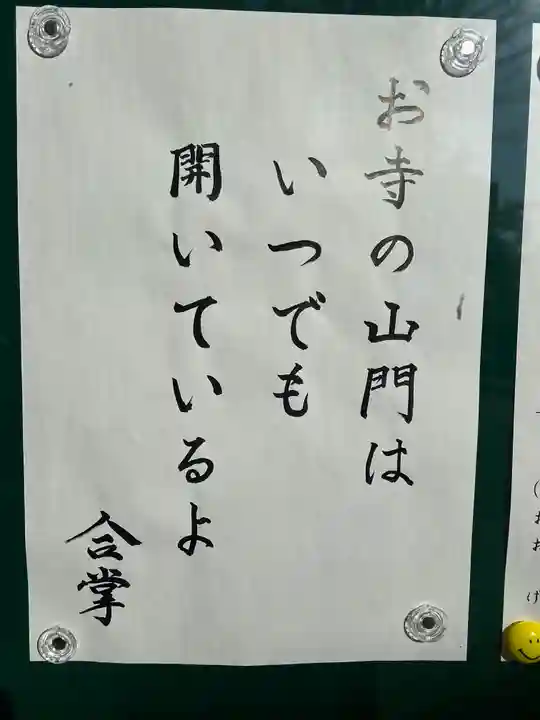 お寺の山門は
いつでも
開いているよ
合掌